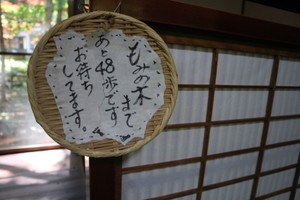 もみの木
まで
あと48歩です。
お待ち
してます。